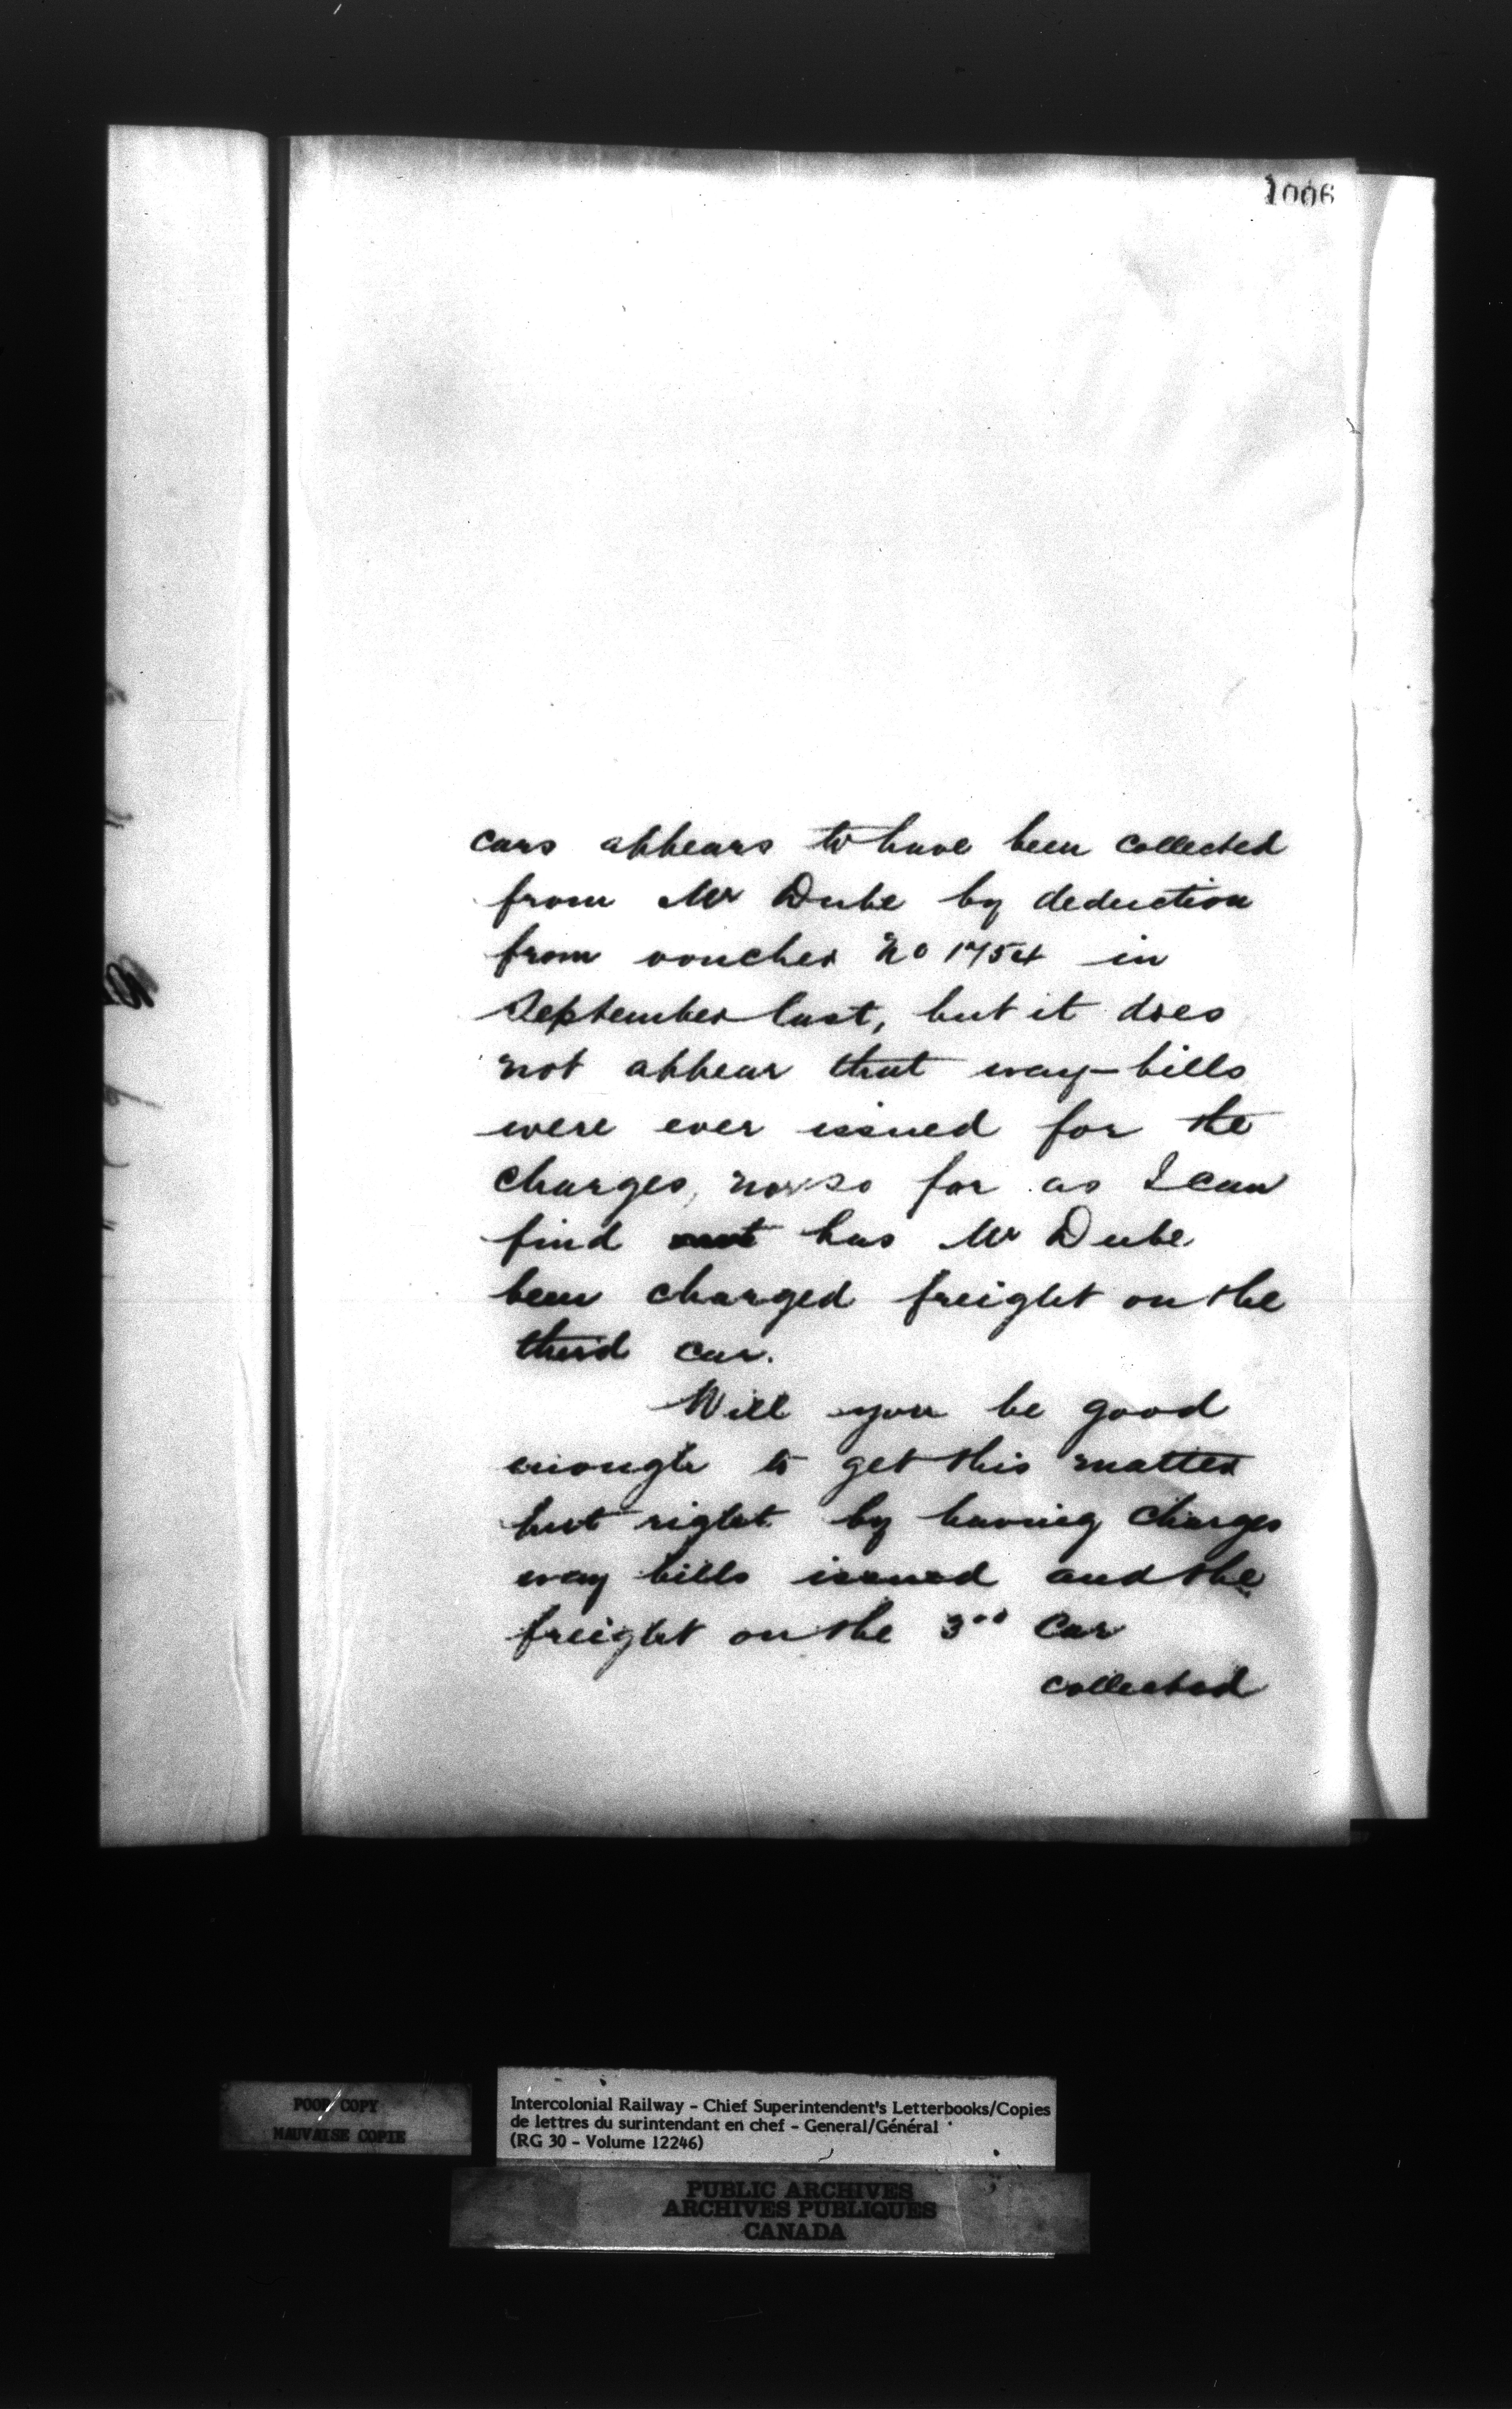 1006
cars appears to have been collected
from Mr Dube by deduction
from voucher No 1754 in
September last, but it does
not appear that way-bills
were ever issued for the
charges, nor so far as I can
find has Mr Dube
been charged freight on the
third car.
Will you be good
enough to get this matter
put right by having charges
way bills issued and the
freight on the 3rd Car
collected
POOR COPY
MAUVAISE COPIE
Intercolonial Railway - Chief Superintendent's Letterbooks/Copies
de lettres du surintendant en chef - General/Général
(RG 30 - Volume 12246)
PUBLIC ARCHIVES
ARCHIVES PUBLIQUES
CANADA